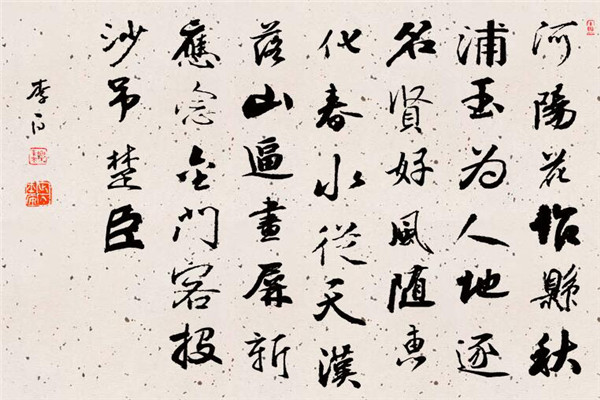 河陽花作縣秋
浦玉为人地逐
名贤好風随惠
化春水從天漢
落山逼畫屏新
應念金門客投
沙吊楚臣
李白